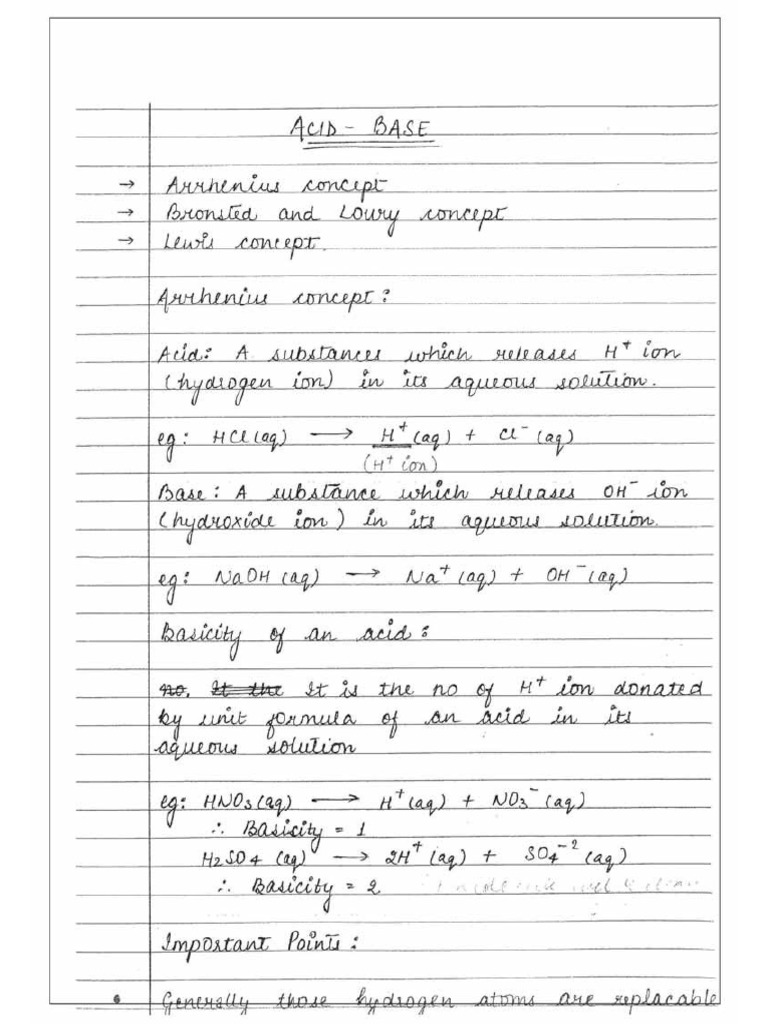 ACID - BASE
→ Arrhenius concept
→ Bronsted and Lowry concept
→ Lewis concept.
Arrhenius concept:
Acid: A substances which releases H⁺ ion
(hydrogen ion) in its aqueous solution.
eg: HCl(aq) ⟶ H⁺(aq) + Cl⁻(aq)
(H⁺ ion)
Base: A substance which releases OH⁻ ion
(hydroxide ion) in its aqueous solution.
eg: NaOH(aq) ⟶ Na⁺(aq) + OH⁻(aq)
Basicity of an acid:
no. It the It is the no of H⁺ ion donated
by unit formula of an acid in its
aqueous solution
eg: HNO₃(aq) ⟶ H⁺(aq) + NO₃⁻(aq)
∴ Basicity = 1
H₂SO₄(aq) ⟶ 2H⁺(aq) + SO₄⁻²(aq)
∴ Basicity = 2
Important Points:
Generally those hydrogen atoms are replacable